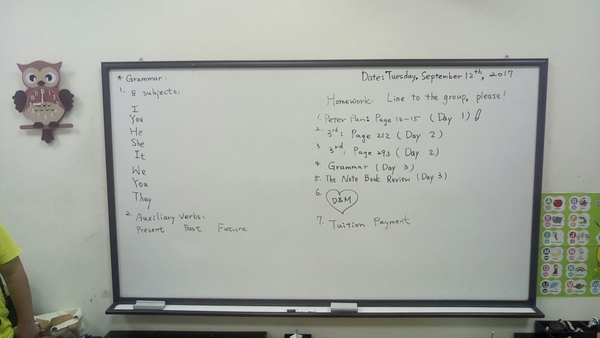 * Grammar:
1. 8 subjects:
I
You
He
She
It
We
You
They
2. Auxiliary verbs:
Present Past Future
Date: Tuesday, September 12th, 2017
Homework: Line to the group, please!
1. Peter Pan: Page 14-15 (Day 1)
2. 3rd: Page 212 (Day 2)
3. 3rd: Page 293 (Day 2)
4. Grammar (Day 3)
5. The Note Book Review (Day 3)
6. D&M
7. Tuition Payment